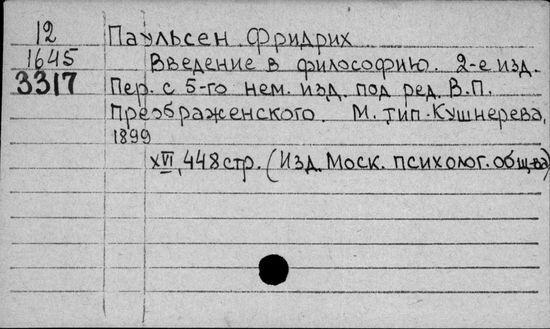 12
1645
3317
Паульсен Фридрих
Введение в философию. 2-е изд.
Пер. с 5-го нем. изд. под ред. В.П.
Преображенского. М. тип. Кушнерева,
1899
XVI, 448 стр. (Изд. Моск. психолог. общ-ва)